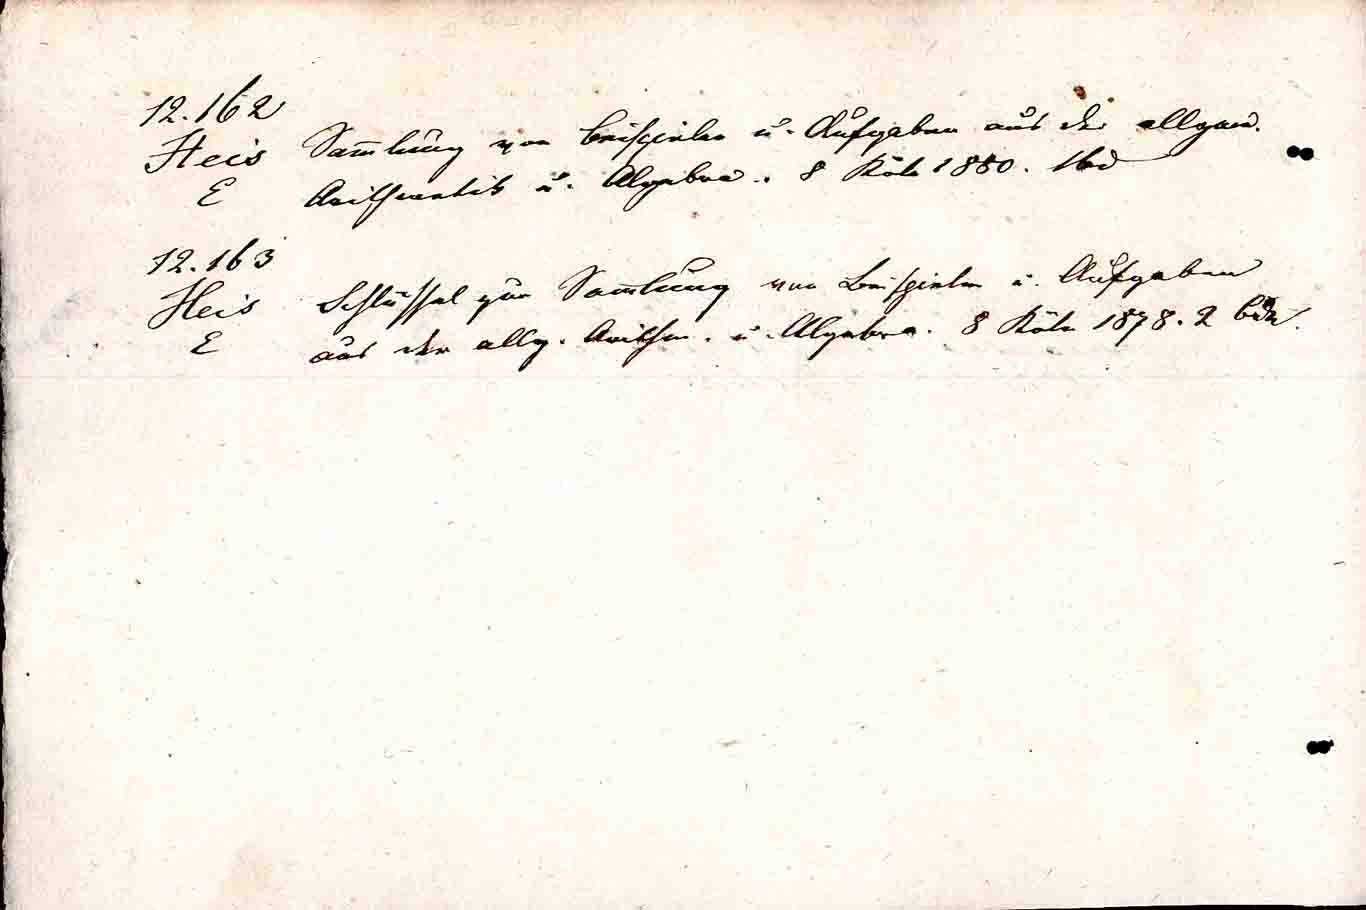 12.162
Heis Sam̅lung von Beispielen u. Aufgaben aus der allgem.
E Arithmetik u. Algebra. 8 Köln 1880. 1bd
12.163
Heis Schlüssel zur Sam̅lung von Beispielen u. Aufgaben
E aus der allg. Arithm. u. Algebra. 8 Köln 1878. 2 bde.